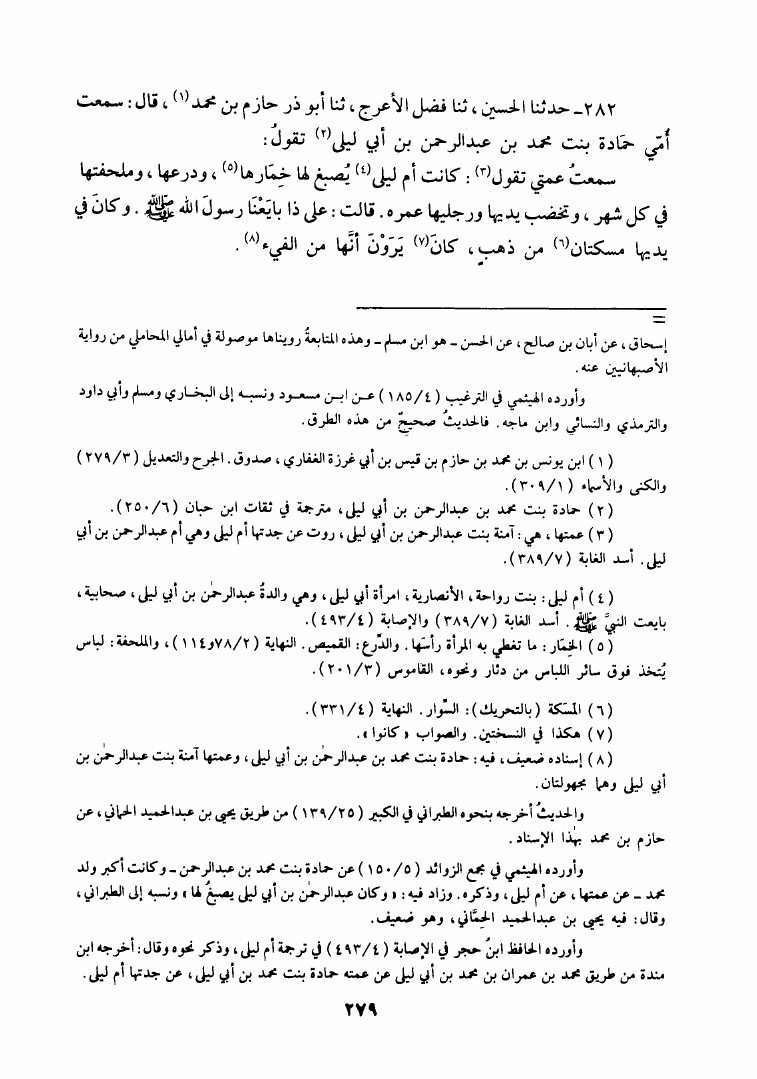 ٢٨٢ـ حدثنا الحسين، ثنا فضل الأعرج، ثنا أبو ذر حازم بن محمد(١)، قال: سمعت
أُمّي حمّادة بنت محمد بن عبدالرحمن بن أبي ليلى(٢) تقولُ:
سمعتُ عمتي تقول(٣): كانت أم ليلى(٤) يُصبغ لها خِمَارها(٥)، ودرعها، وملحفتها
في كل شهر، وتخضب يديها ورجليها عمره. قالت: على ذا بايَعْنَا رسولَ الله ﷺ. وكانَ في
يديها مسكتان(٦) من ذهبٍ، كانَ(٧) يَرَوْنَ أنَّها من الفيء(٨).
=
إسحاق، عن أبان بن صالح، عن الحسن ـ هو ابن مسلم ـ وهذه المتابعةُ رويناها موصولة في أمالي المحاملي من رواية
الأصبهانيين عنه.
وأورده الهيثمي في الترغيب (١٨٥/٤) عن ابن مسعود ونسبه إلى البخاري ومسلم وأبي داود
والترمذي والنسائي وابن ماجه. فالحديثُ صحيحٌ من هذه الطرق.
(١) ابن يونس بن محمد بن حازم بن قيس بن أبي غرزة الغفاري، صدوق. الجرح والتعديل (٢٧٩/٣)
والكنى والأسماء (٣٠٩/١).
(٢) حمادة بنت محمد بن عبدالرحمن بن أبي ليلى، مترجمة في ثقات ابن حبان (٢٥٠/٦).
(٣) عمتها، هي: آمنة بنت عبدالرحمن بن أبي ليلى، روت عن جدتها أم ليلى وهي أم عبدالرحمن بن أبي
ليلى. أسد الغابة (٣٨٩/٧).
(٤) أم ليلى: بنت رواحة، الأنصارية، امرأة أبي ليلى، وهي والدةُ عبدالرحمٰن بن أبي ليلى، صحابية،
بايعت النبيَّ ﷺ. أسد الغابة (٣٨٩/٧) والإصابة (٤٩٣/٤).
(٥) الخِمَار: ما تغطي به المرأة رأسَها. والدِّرع: القميص. النهاية (٧٨/٢و١١٤)، والملحفة: لباس
يُتخذ فوق سائر اللباس من دثار ونحوه، القاموس (٢٠١/٣).
(٦) المسَكة (بالتحريك): السِّوار. النهاية (٣٣١/٤).
(٧) هكذا في النسختين. والصواب «كانوا».
(٨) إسناده ضعيف، فيه: حمادة بنت محمد بن عبدالرحمٰن بن أبي ليلى، وعمتها آمنة بنت عبدالرحمٰن بن
أبي ليلى وهما مجهولتان.
والحديثُ أخرجه بنحوه الطبراني في الكبير (١٣٩/٢٥) من طريق يحيى بن عبدالحميد الحماني، عن
حازم بن محمد بهٰذا الإسناد.
وأورده الهيثمي في مجمع الزوائد (١٥٠/٥) عن حمادة بنت محمد بن عبدالرحمن ـ وكانت أكبر ولد
محمد ـ عن عمتها، عن أم ليلى، وذكره. وزاد فيه: «وكان عبدالرحمٰن بن أبي ليلى يصبغُ لها» ونسبه إلى الطبراني،
وقال: فيه يحيى بن عبدالحميد الحِمَّاني، وهو ضعيف.
وأورده الحافظ ابنُ حجر في الإصابة (٤٩٣/٤) في ترجمة أم ليلى، وذكر نحوه وقال: أخرجه ابن
مندة من طريق محمد بن عمران بن محمد بن أبي ليلى عن عمته حمادة بنت محمد بن أبي ليلى، عن جدتها أم ليلى.
٢٧٩